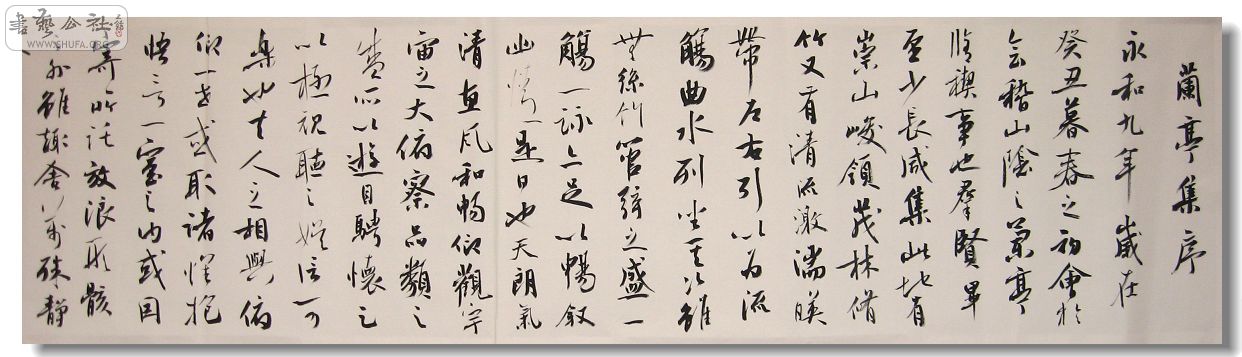 書藝公社
WWW.SHUFA.ORG
蘭亭集序
永和九年歲在
癸丑暮春之初會於
會稽山陰之蘭亭
脩禊事也羣賢畢
至少長咸集此地有
崇山峻領茂林脩
竹又有清流激湍暎
帶左右引以為流
觴曲水列坐其次雖
無絲竹管弦之盛一
觴一詠亦足以暢叙
幽情是日也天朗氣
清惠風和暢仰觀宇
宙之大俯察品類之
盛所以遊目騁懷足
以極視聽之娛信可
樂也夫人之相與俯
仰一世或取諸懷抱
悟言一室之內或因
寄所託放浪形骸
之外雖趣舍萬殊靜